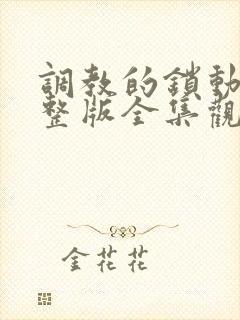 調教的鎖動
整版全集觀
金花花